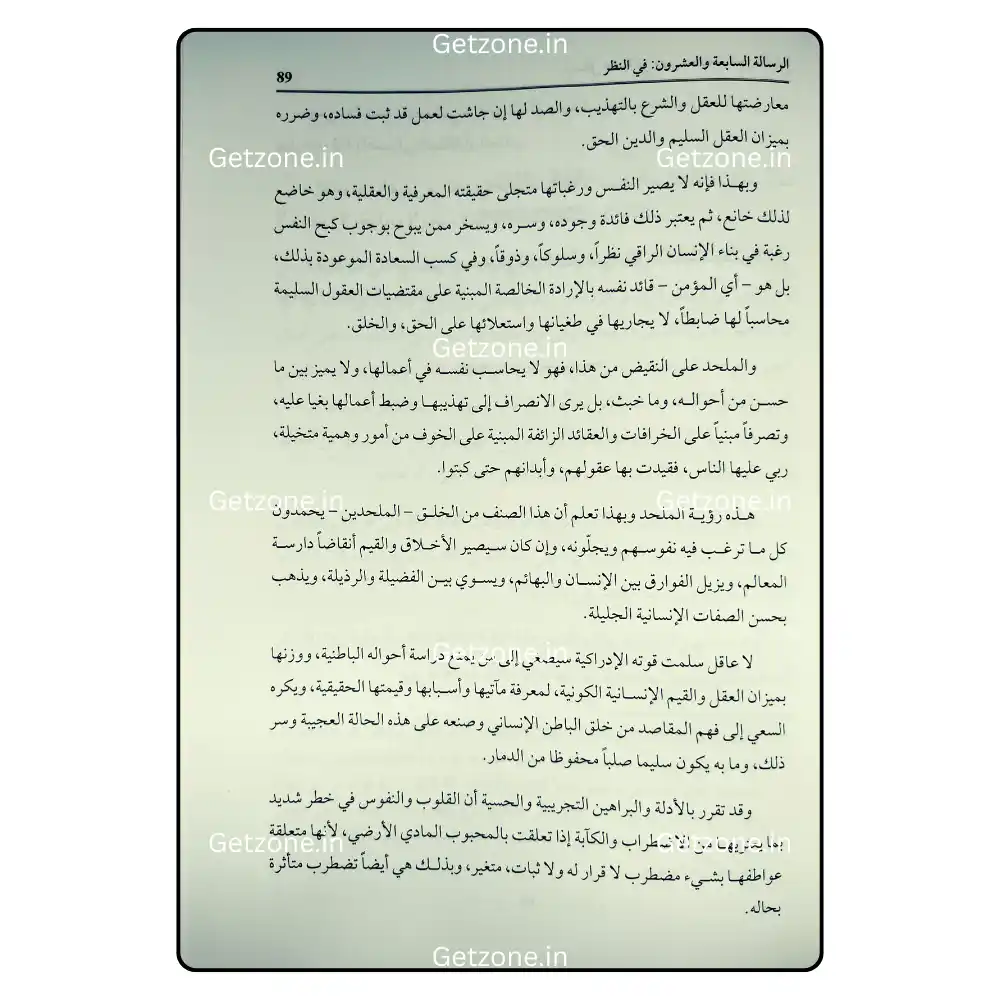 Getzone.in
الرسالة السابعة والعشرون: في النظر
89
معارضتها للعقل والشرع بالتهذيب، والصد لها إن جاشت لعمل قد ثبت فساده، وضرره
بميزان العقل السليم والدين الحق.
Getzone.in
Getzone.in
وبهذا فإنه لا يصير النفس ورغباتها متجلى حقيقته المعرفية والعقلية، وهو خاضع
لذلك خانع، ثم يعتبر ذلك فائدة وجوده، وسره، ويسخر ممن يبوح بوجوب كبح النفس
رغبة في بناء الإنسان الراقي نظراً، وسلوكاً، وذوقاً، وفي كسب السعادة الموعودة بذلك،
بل هو – أي المؤمن – قائد نفسه بالإرادة الخالصة المبنية على مقتضيات العقول السليمة
محاسباً لها ضابطاً، لا يجاريها في طغيانها واستعلائها على الحق، والخلق.
Getzone.in
والملحد على النقيض من هذا، فهو لا يحاسب نفسه في أعمالها، ولا يميز بين ما
حسن من أحواله، وما خبث، بل يرى الانصراف إلى تهذيبها وضبط أعمالها بغيا عليه،
وتصرفاً مبنياً على الخرافات والعقائد الزائفة المبنية على الخوف من أمور وهمية متخيلة،
ربي عليها الناس، فقيدت بها عقولهم، وأبدانهم حتى كبتوا.
Getzone.in
Getzone.in
هذه رؤية الملحد وبهذا تعلم أن هذا الصنف من الخلق – الملحدين – يحمدون
كل ما ترغب فيه نفوسهم ويجلّونه، وإن كان سيصير الأخلاق والقيم أنقاضاً دارسة
المعالم، ويزيل الفوارق بين الإنسان والبهائم، ويسوي بين الفضيلة والرذيلة، ويذهب
بحسن الصفات الإنسانية الجليلة.
Getzone.in
لا عاقل سلمت قوته الإدراكية سيصغي إلى يمنع دراسة أحواله الباطنية، ووزنها
بميزان العقل والقيم الإنسانية الكونية، لمعرفة مآتيها وأسبابها وقيمتها الحقيقية، ويكره
السعي إلى فهم المقاصد من خلق الباطن الإنساني وصنعه على هذه الحالة العجيبة وسر
ذلك، وما به يكون سليما صلباً محفوظا من الدمار.
وقد تقرر بالأدلة والبراهين التجريبية والحسية أن القلوب والنفوس في خطر شديد
Getzone.in
Getzone.in
بما يعتريها من الاضطراب والكآبة إذا تعلقت بالمحبوب المادي الأرضي، لأنها متعلقة
عواطفها بشيء مضطرب لا قرار له ولا ثبات، متغير، وبذلك هي أيضاً تضطرب متأثرة
بحاله.
Getzone.in